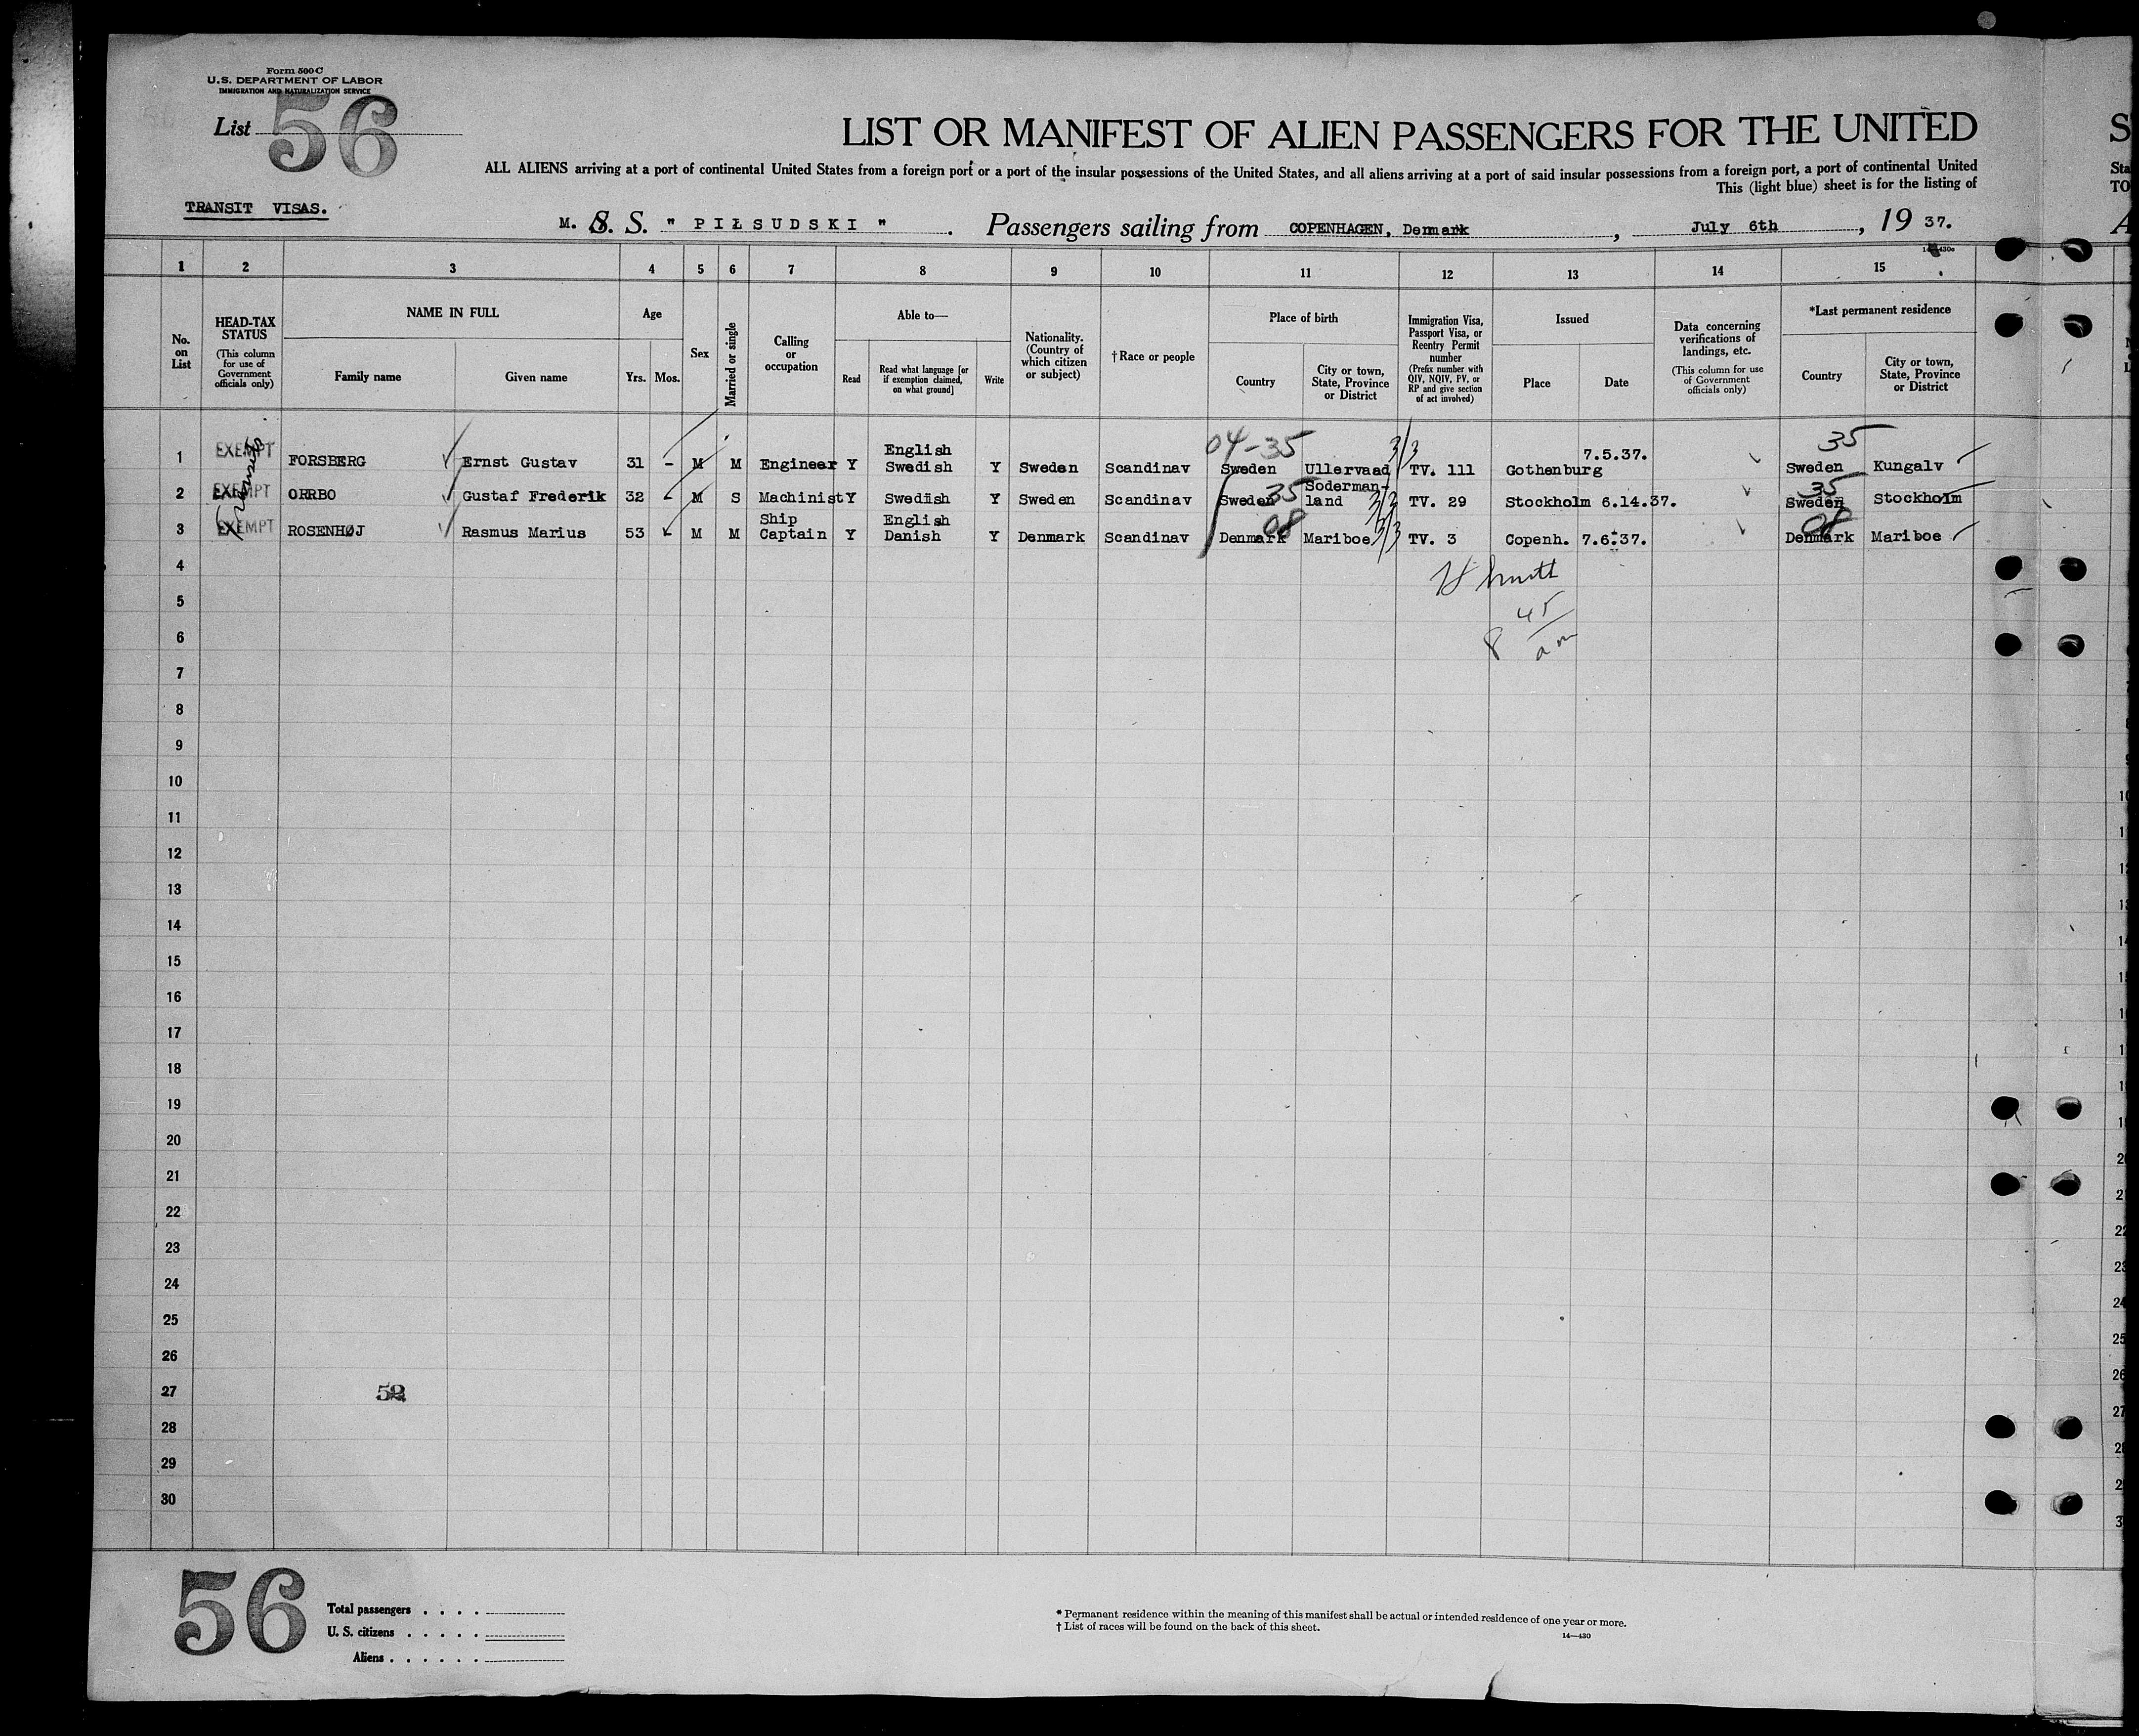 Form 500 C
U.S. DEPARTMENT OF LABOR
IMMIGRATION AND NATURALIZATION SERVICE
List 56
LIST OR MANIFEST OF ALIEN PASSENGERS FOR THE UNITED
S
ALL ALIENS arriving at a port of continental United States from a foreign port or a port of the insular possessions of the United States, and all aliens arriving at a port of said insular possessions from a foreign port, a port of continental United
Sta
This (light blue) sheet is for the listing of
TO
TRANSIT VISAS.
M. S. S. " PIŁSUDSKI " . Passengers sailing from COPENHAGEN, Denmark , July 6th , 19 37.
A
1 2 3 4 5 6 7 8 9 10 11 12 13 14 15
No. on List
HEAD-TAX STATUS (This column for use of Government officials only)
NAME IN FULL
Family name
Given name
Age
Yrs. Mos.
Sex
Married or single
Calling or occupation
Able to—
Read
Read what language [or if exemption claimed, on what ground]
Write
Nationality. (Country of which citizen or subject)
†Race or people
Place of birth
Country
City or town, State, Province or District
Immigration Visa, Passport Visa, or Reentry Permit number (Prefix number with QIV, NQIV, PV, or RP and give section of act involved)
Issued
Place
Date
Data concerning verifications of landings, etc. (This column for use of Government officials only)
*Last permanent residence
Country
City or town, State, Province or District
04-35 3/3 35
1 EXEMPT FORSBERG Ernst Gustav 31 - M M Engineer Y English Swedish Y Sweden Scandinav Sweden Ullervaad TV. 111 Gothenburg 7.5.37. Sweden Kungalv
35 3/3 35
2 EXEMPT ORRBO Gustaf Frederik 32 - M S Machinist Y Swedish Y Sweden Scandinav Sweden Soderman-land TV. 29 Stockholm 6.14.37. Sweden Stockholm
08 3/3 08
3 EXEMPT ROSENHØJ Rasmus Marius 53 - M M Ship Captain Y English Danish Y Denmark Scandinav Denmark Mariboe TV. 3 Copenh. 7.6.37. Denmark Mariboe
Transit
4
H Smith
5
8 45 am
6
7
8
9
10
11
12
13
14
15
16
17
18
19
20
21
22
23
24
25
26
27
28
29
30
56
Total passengers . . . .
U. S. citizens . . . . .
Aliens . . . . . .
* Permanent residence within the meaning of this manifest shall be actual or intended residence of one year or more.
† List of races will be found on the back of this sheet.
14—430